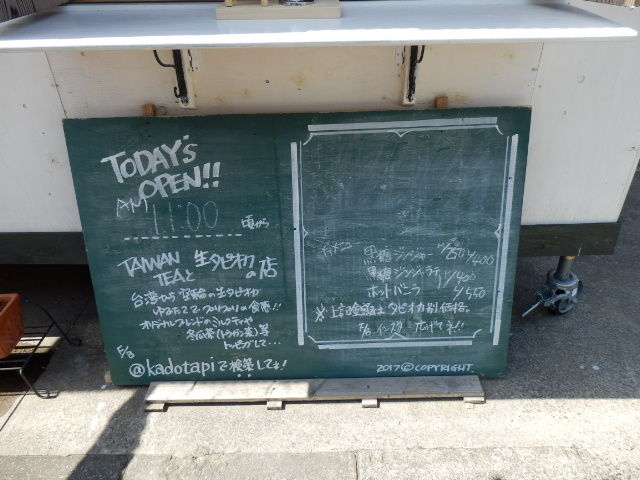 TODAY's
OPEN!!
AM 11:00 頃から
TAIWAN TEAと 生タピオカの店
台湾から 空輸の生タピオカ
ゆでたて で プリプリ の食感!!
オリジナルブレンドのミルクティや
冬瓜茶(トウガン茶)等
F/B @kadotapiで検索してネ!
黒糖ジンジャー ¥400
黒糖ジンジャーラテ ¥400
ホットバニラ ¥550
※上記金額は タピオカ別価格。
2017 © COPYRIGHT